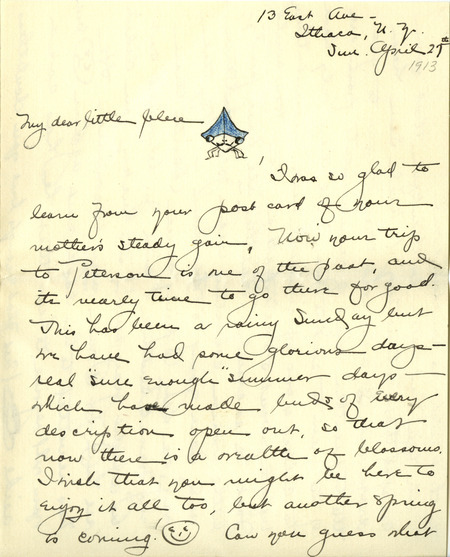 13 East Ave -
Ithaca, N.Y.
Sun. April 27th
1913
My dear little
I was so glad to
learn from your post card of your
mother's steady gain. Now your trip
to Peterson is one of the past, and
its nearly time to go there for good.
This has been a rainy Sunday but
we have had some glorious days -
real "sure enough" summer days -
which have made buds of every
description open out, so that
now there is a wealth of blossoms.
I wish that you might be here to
enjoy it all too, but another Spring
is coming! Can you guess what